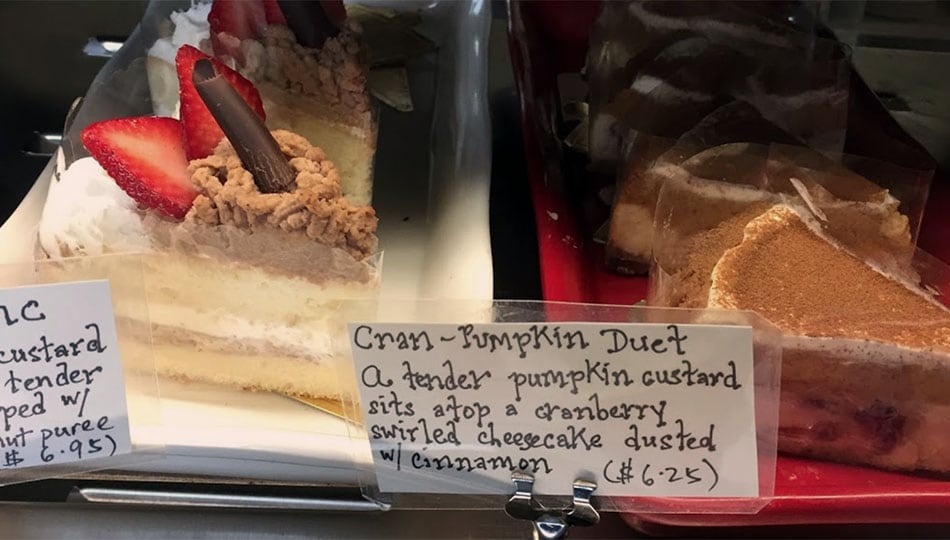 custard
tender
ped w/
ut puree
$ 6.95)
Cran-Pumpkin Duet
a tender pumpkin custard
sits atop a cranberry
swirled cheesecake dusted
w/ cinnamon ($6.25)